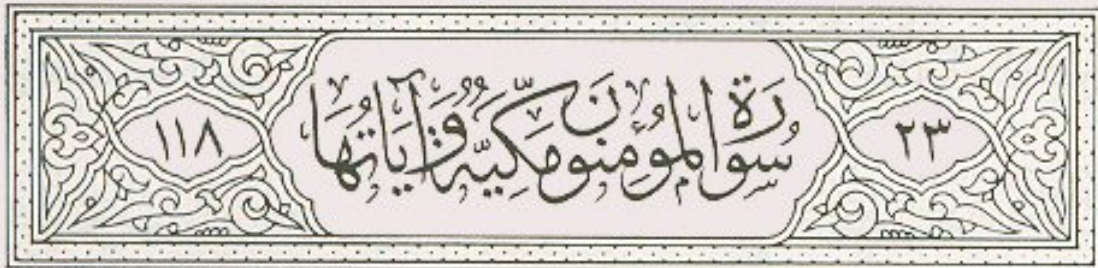 ٢٣ سُورَةُ المُؤْمِنُونَ مَكِّيَّةٌ وَآيَاتُهَا ١١٨